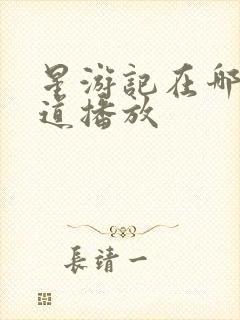 星游記在哪
道播放
長靖一